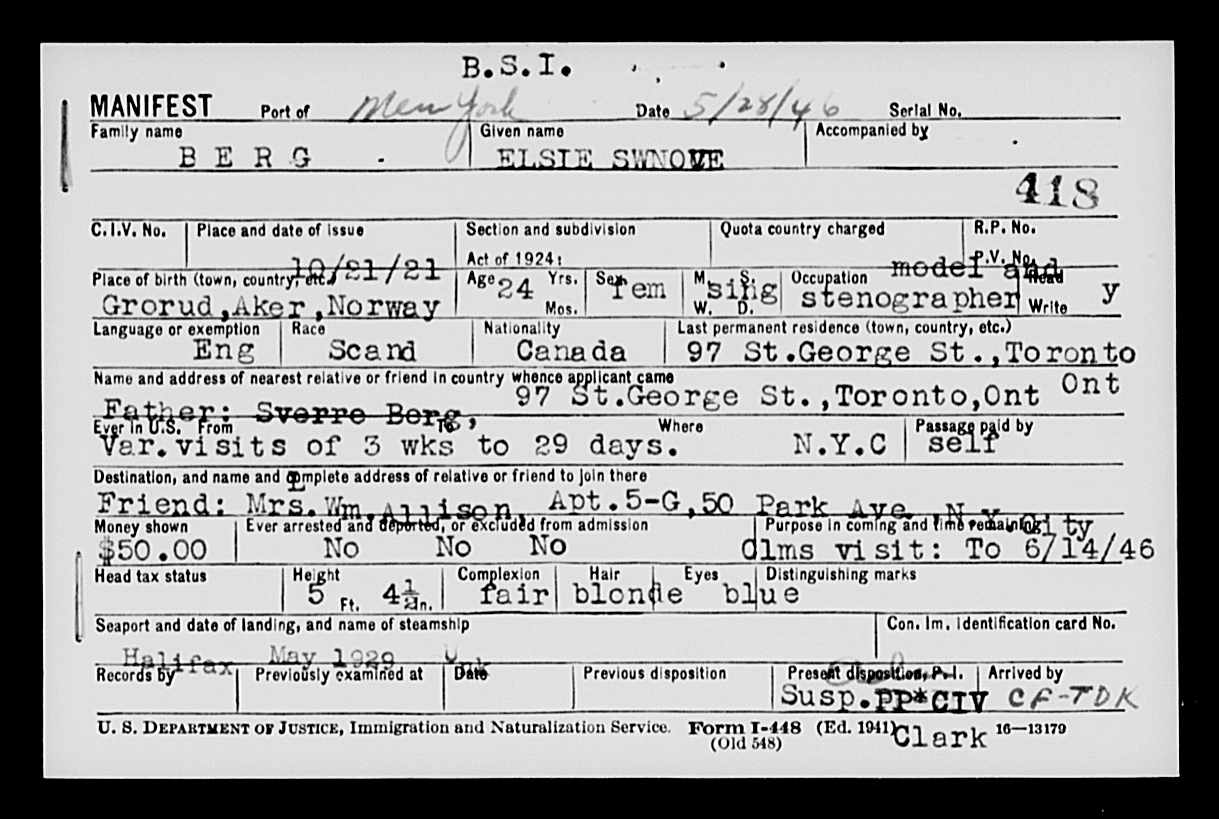 B.S.I.
MANIFEST Port of New York Date 5/28/46 Serial No.
Family name Given name Accompanied by
BERG ELSIE SWNOVE
418
C.I.V. No. Place and date of issue Section and subdivision Quota country charged R.P. No.
Act of 1924: P.V. No.
10/21/21 model and
Place of birth (town, country, etc.) Age 24 Yrs. Sex M. S. Occupation Read
Grorud,Aker,Norway Mos. Fem W. D. sing stenographer Write y
Language or exemption Race Nationality Last permanent residence (town, country, etc.)
Eng Scand Canada 97 St.George St.,Toronto
Name and address of nearest relative or friend in country whence applicant came
97 St.George St.,Toronto,Ont Ont
Father: Sverre Berg,
Ever in U.S. From To Where Passage paid by
Var.visits of 3 wks to 29 days. N.Y.C self
Destination, and name and complete address of relative or friend to join there
Friend: Mrs.Wm.Allison, Apt.5-G,50 Park Ave.,N.Y.City
Money shown Ever arrested and deported, or excluded from admission Purpose in coming and time remaining
$50.00 No No No dlms visit: To 6/14/46
Head tax status Height Complexion Hair Eyes Distinguishing marks
5 Ft. 4½ In. fair blonde blue
Seaport and date of landing, and name of steamship Con. Im. Identification card No.
Halifax May 1929 Unk
Records by Previously examined at Date Previous disposition Present disposition, P.I. Arrived by
Susp.PP*CIV CF-TDK
U. S. DEPARTMENT OF JUSTICE, Immigration and Naturalization Service. Form I-448 (Ed. 1941) Clark 16—13179
(Old 548)